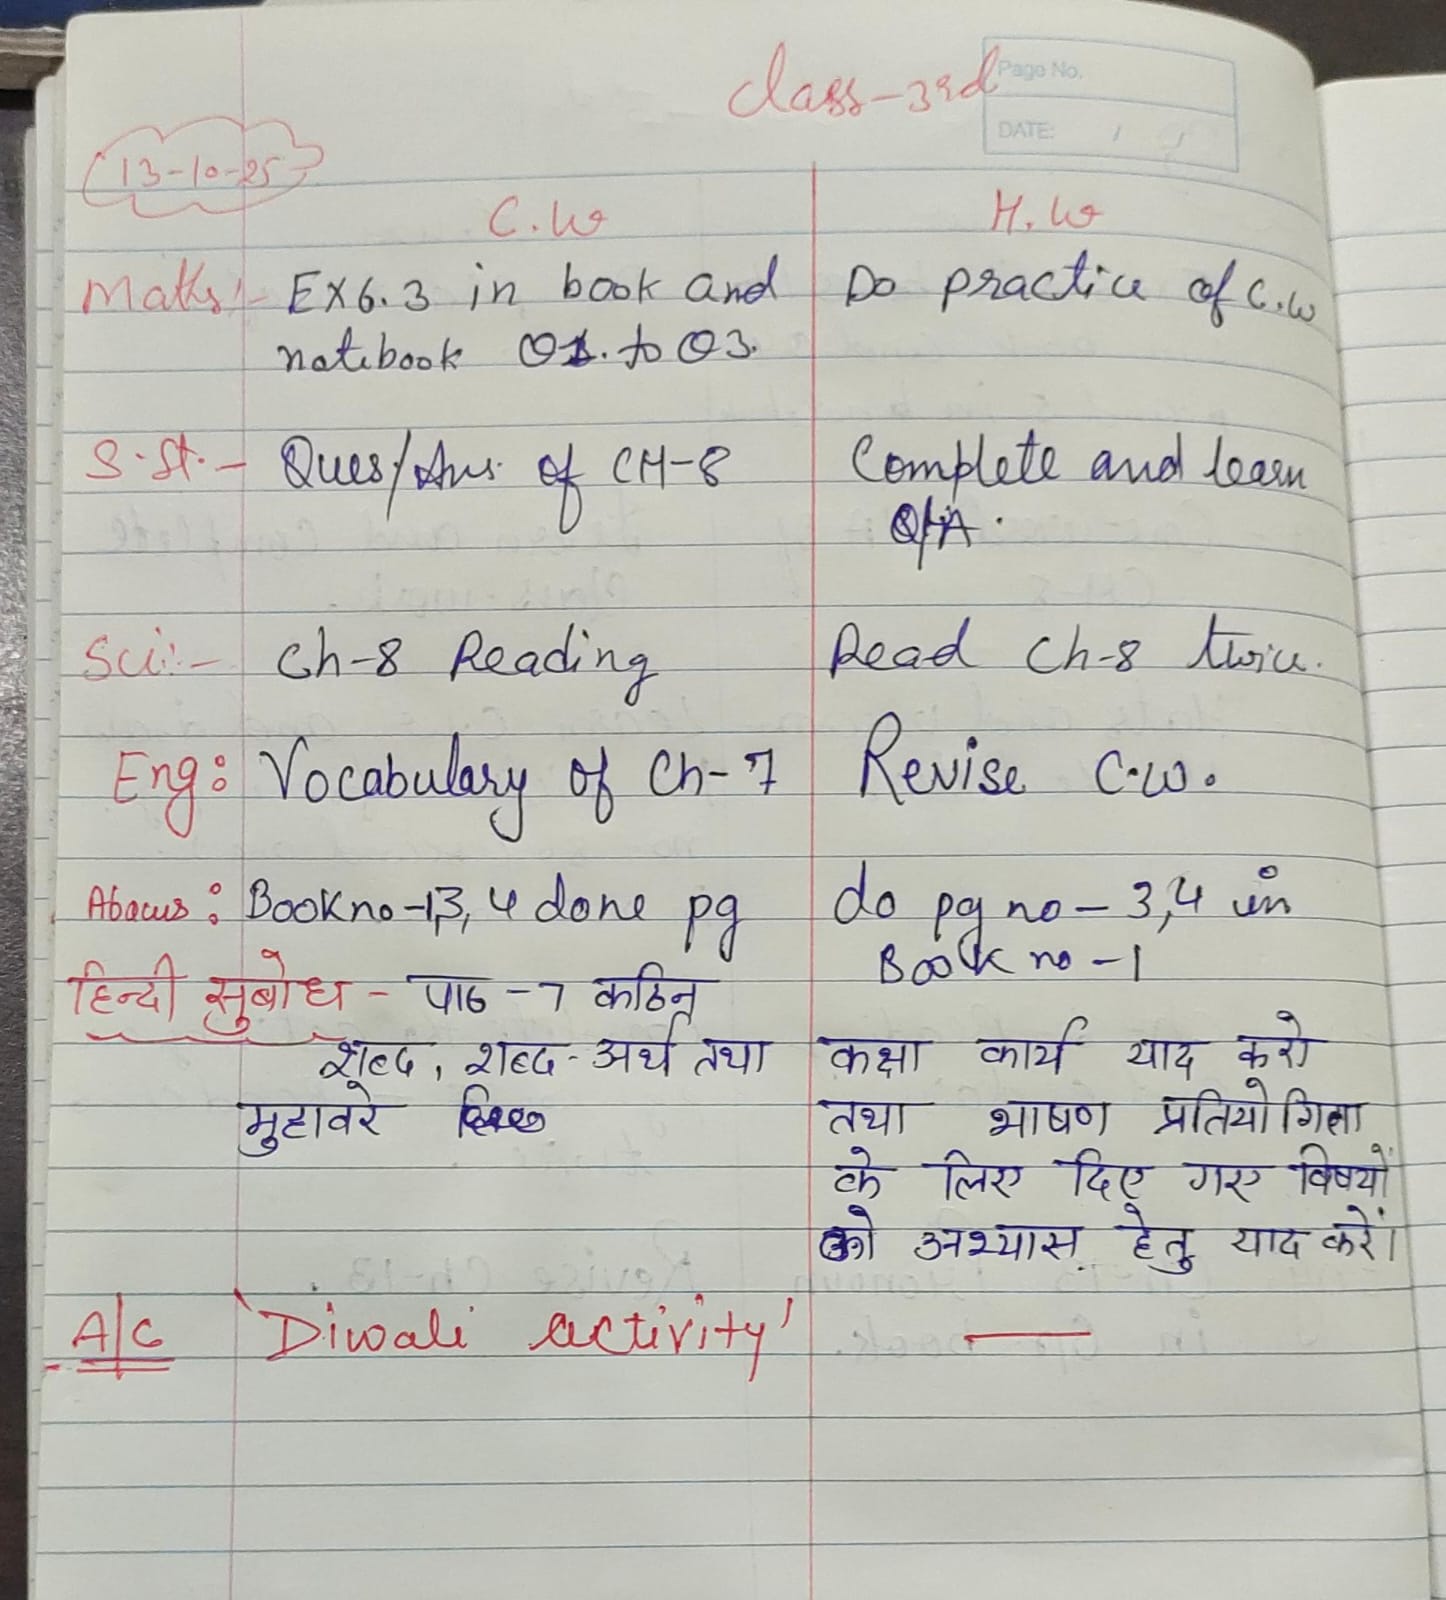 Class-3rd
Page No.
DATE:
13-10-25
C.W H.W
Maths:- EX6.3 in book and Do practice of C.W
notebook Q1. to Q3.
S.St.- Ques/Ans. of CH-8 Complete and learn
Q/A.
Sci:- Ch-8 Reading Read Ch-8 twice.
Eng: Vocabulary of Ch-7 Revise C.W.
Abacus: Book no-1,3,4 done pg do pg no-3,4 in
Book no-1
हिन्दी सुबोध - पाठ-7 कठिन
शब्द, शब्द-अर्थ तथा कक्षा कार्य याद करो
मुहावरे तथा भाषण प्रतियोगिता
के लिए दिए गए विषयों
को अभ्यास हेतु याद करें।
A/C 'Diwali activity' —